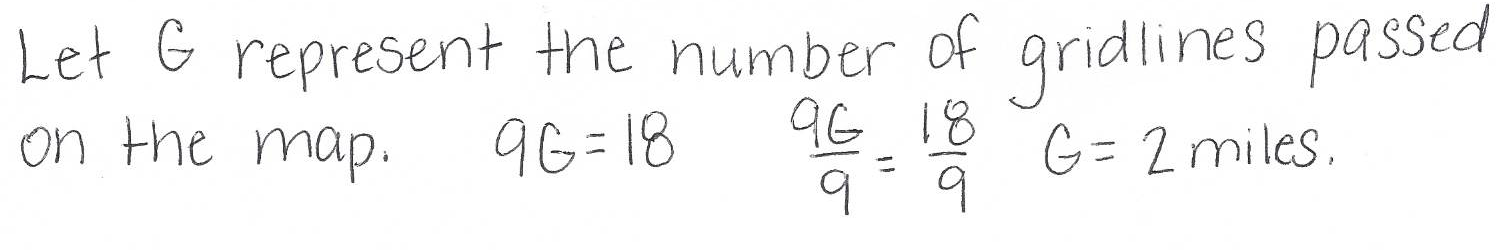 Let G represent the number of gridlines passed
on the map. 9G=18 9G/9 = 18/9 G= 2 miles.